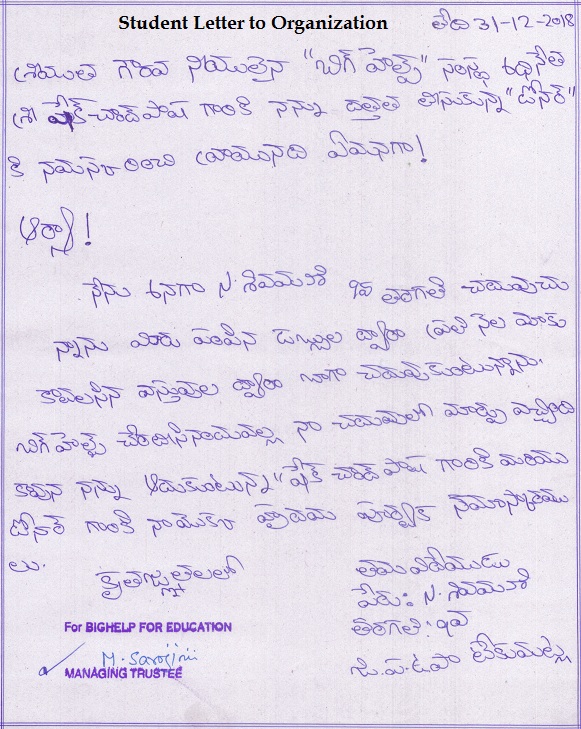 Student Letter to Organization
తేది 31-12-2018
శ్రీయుత గౌరవ నియులైన "బిగ్ హెల్ప్" సంస్థ అధినేత
శ్రీ షేక్ చాంద్ పాష గారికి నన్ను దత్తత తీసుకున్న "డోనర్"
కి నమస్కరించి వ్రాయునది ఏమనగా!
ఆర్యా!
నేను అనగా N. శివమణి 9వ తరగతి చదువుచు
న్నాను మీరు పంపిన డబ్బుల ద్వారా ప్రతి నెల మాకు
కావలసిన వస్తువుల ద్వారా బాగా చదువుకుంటున్నాను.
బిగ్ హెల్ప్ చేయబట్టి నా చదువులో మార్పు వచ్చింది
కావున నన్ను ఆదుకుంటున్న "షేక్ చాంద్ పాష గారికి మరియు
డోనర్ గారికి నాయొక్క హృదయ పూర్వక నమస్కారము
లు.
కృతజ్ఞతలతో
తమ విదేయుడు
పేరు: N. శివమణి
తరగతి: 9వ
జి.ప.ఉ.పా టేకుమట్ల
For BIGHELP FOR EDUCATION
M. Sarojini
MANAGING TRUSTEE